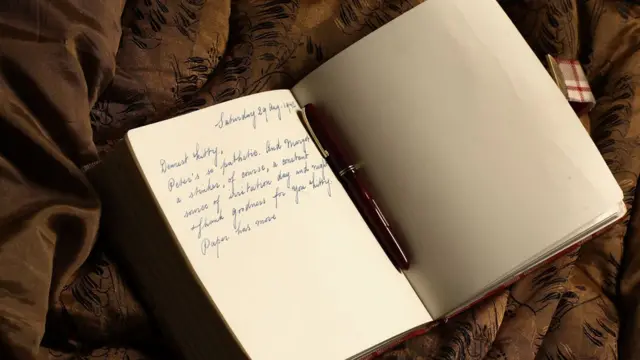 Saturday 29 Aug.
Dearest Kitty,
Peter's so pathetic. And Margot
a of course, a constant
source of irritation day and night
Thank goodness for you Kitty.
Paper has more